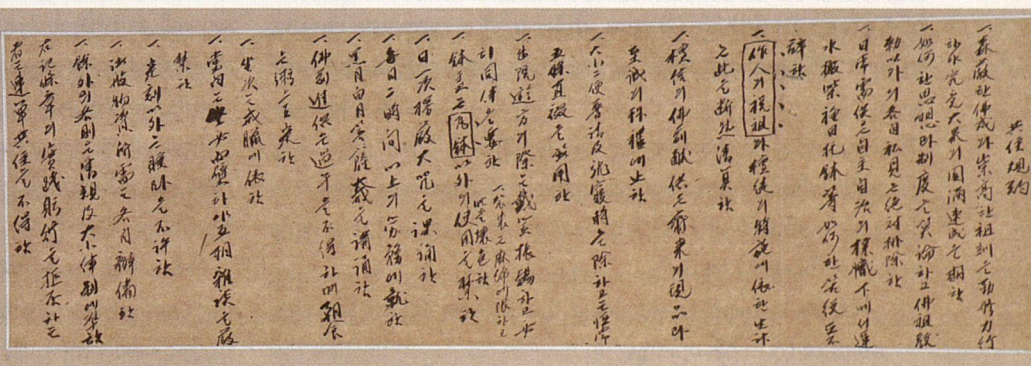 共住規約
一. 森嚴한 佛戒와 崇高한 祖訓을 勤修力行
하야 究竟大果의 圓滿速成을 期함
一. 如何한 思想과 制度를 莫論하고 佛祖敎
勅以外의 各自私見은 絶對排除함
一. 日常需供은 自主自治의 標幟下에서 運
水 搬柴 種田 托鉢 等 如何한 苦役도 不
辭함
一. 作人의 稅租와 檀徒의 特施에 依한 生計
는 此를 斷然淸算함
一. 檀信의 佛前獻供은 齋來의 現品과
至誠의 拜禮에 止함
一. 大小二便 普請 及 就寢時를 除하고는 恒常
五條直裰을 着用함
一. 出院遊方의 際는 戴笠振錫하고 必
히 團體를 要함
一. 袈裟는 麻綿에 限하고
此를 壞色함
一. 鉢盂는 瓦鉢以外의 使用을 禁함
一. 日一次 楞嚴大呪를 課誦함
一. 每日 二時間以上의 勞務에 就함
一. 黑月白月 布薩大戒를 講誦함
一. 佛前進供은 過午를 不得하며 朝食
은 粥으로 定함
一. 坐次는 戒臘에 依함
一. 堂內는 必面壁하야 互相雜談을 嚴
禁함
一. 定刻以外는 寢臥를 不許함
一. 諸般物資所需는 各自辨備함
一. 餘外의 各則은 淸規及大小律制에 準함
右記條章의 實踐躬行을 拒否하는
者는 連單共住를 不得함